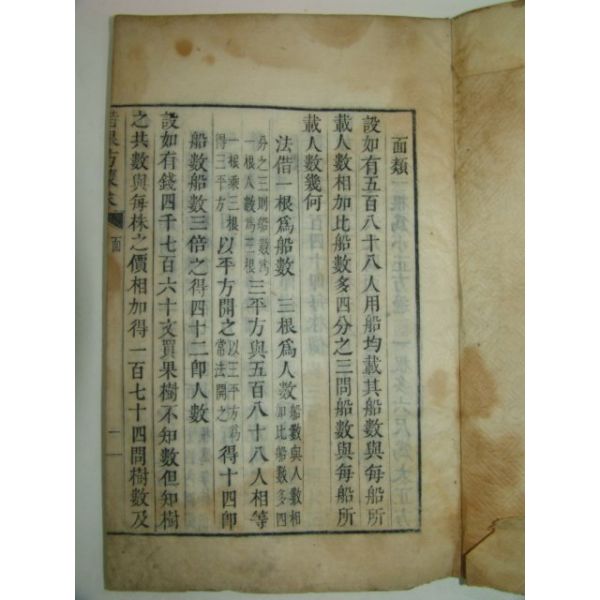 面類
設如有五百八十八人用船均載其船數與每船所
載人數相加比船數多四分之三問船數與每船所
載人數幾何
法借一根爲船數 三根爲人數船數與人數相加比船數多四
分之三則船數爲一根人數爲三根三平方與五百八十八人相等
一根乘三根得三平方以平方開之以三平方爲常法開之得十四卽
船數船數三倍之得四十二卽人數
設如有錢四千七百六十文買果樹不知數但知樹
之共數與每株之價相加得一百七十四問樹數及
借根方蒙求 面 一